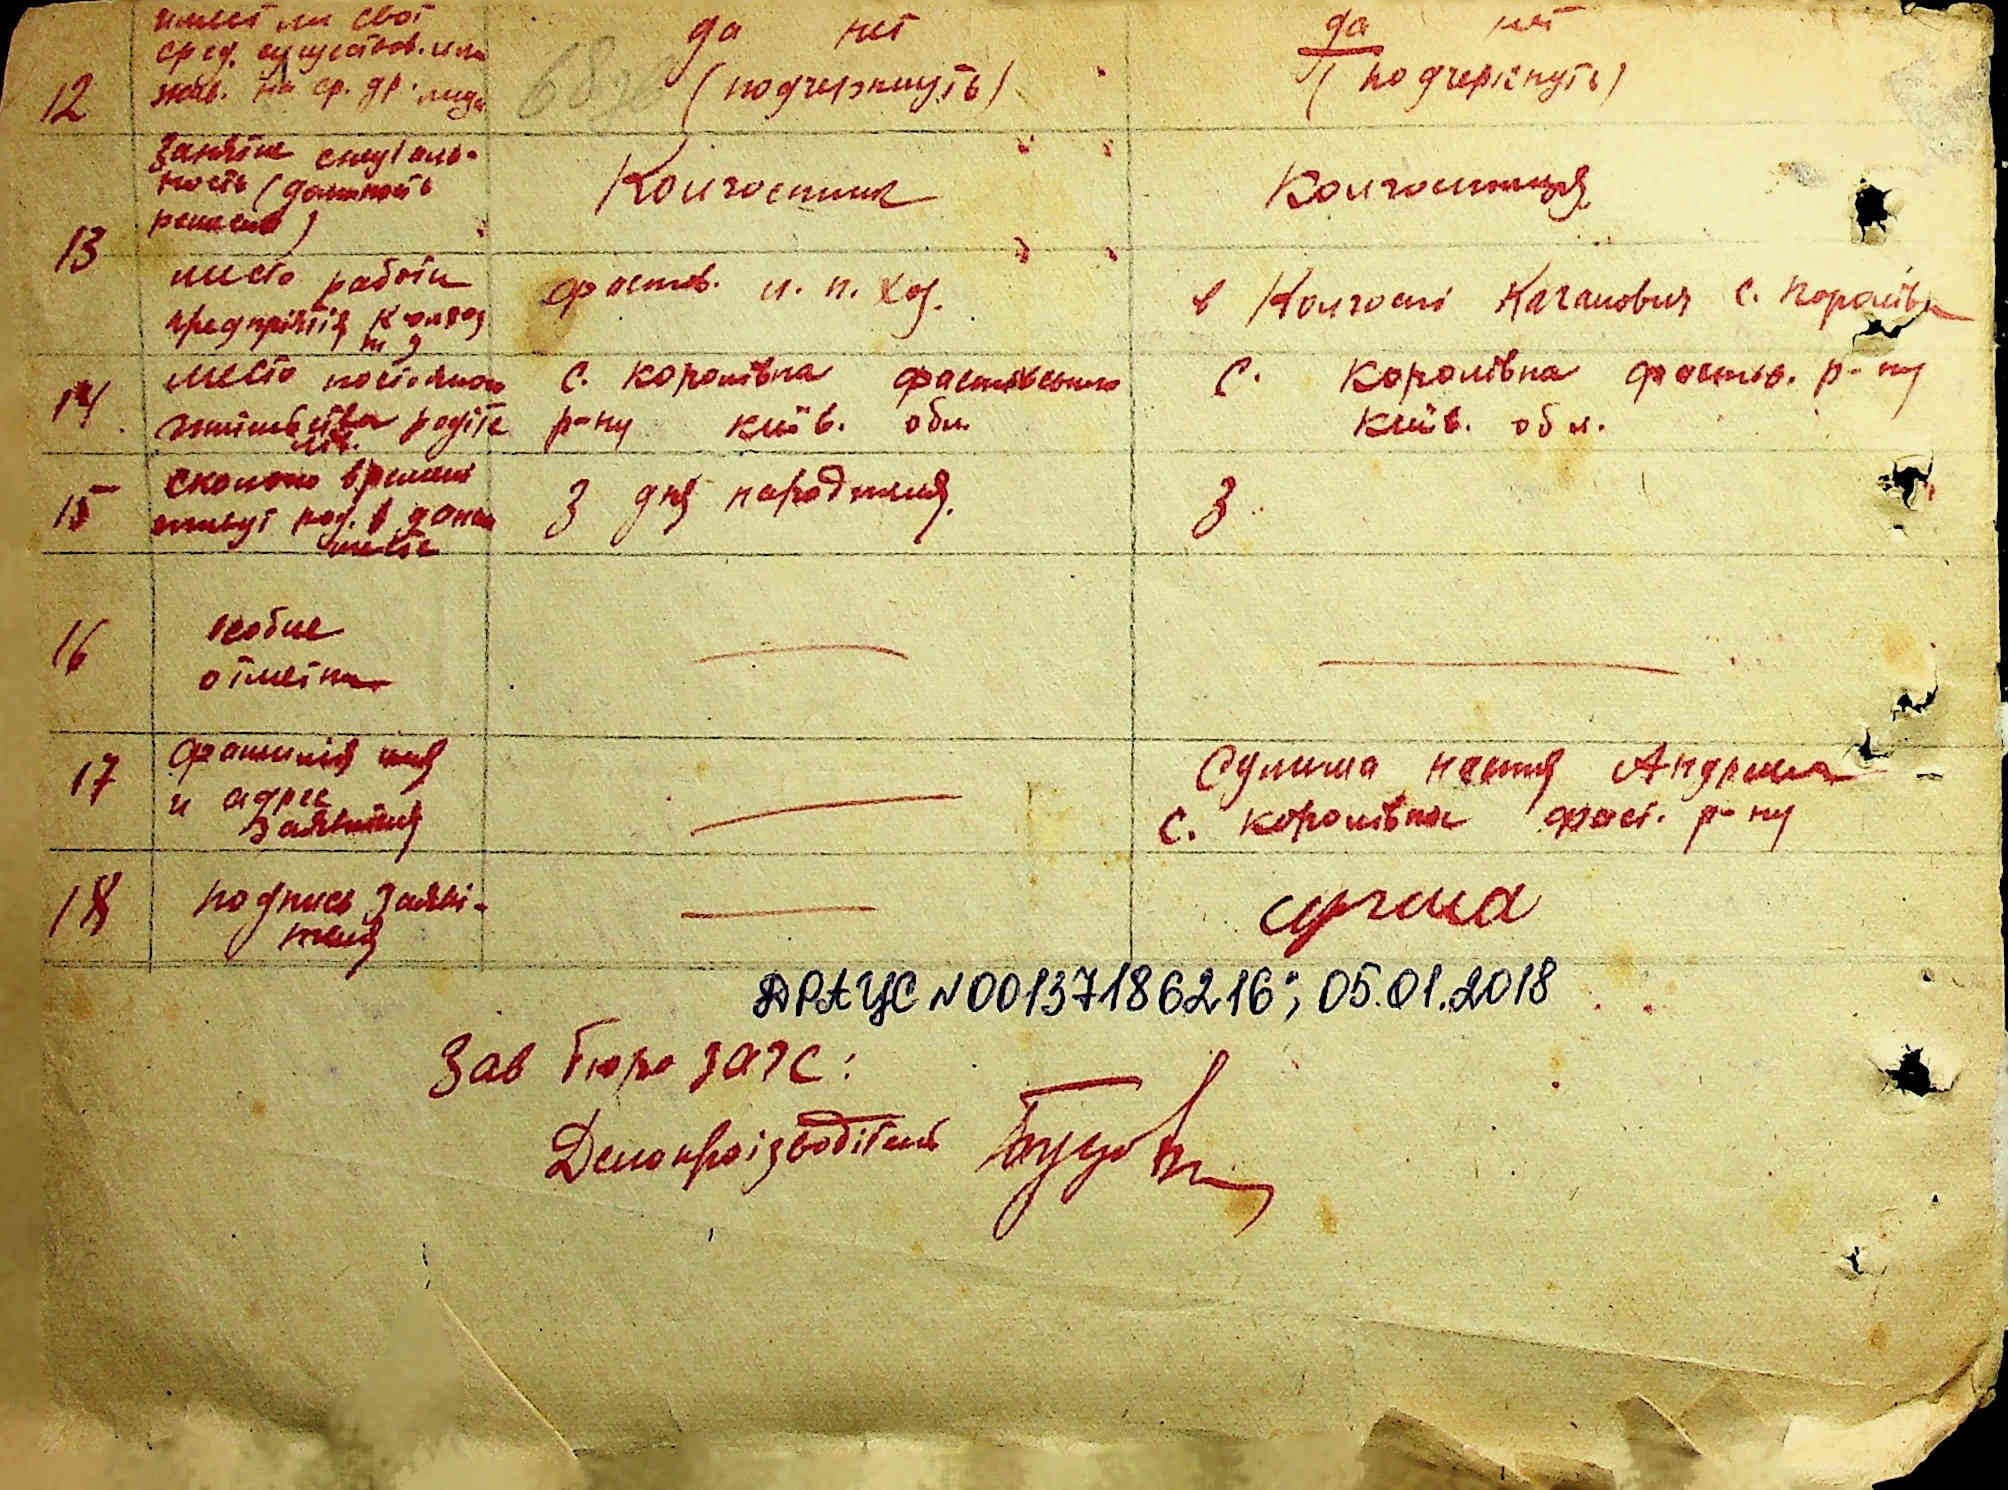 12 имеет ли свои
сред. существов. или
жив. на ср. др. лица
да нет
(подчеркнуть)
да нет
(подчеркнуть)
13 Заняtie специаль-
ность (должность
ремесло)
Колгоспник
Колгоспниця
место работи
предпріятія колхоз
и. п. хоз.
в Колгоспі Кагановича с. Королівка
14 место постоянного
жительства родите
лей.
с. Королівка Фастівського
р-ну Київ. обл.
с. Королівка Фастів. р-ну
Київ. обл.
15 сколько времени
живут род. в даном
месте
З дня народження.
З
16 особие
отметки
17 Фамилия имя
и адрес
Заявителя
Сулима Настя Андріївна
с. Королівка Фаст. р-ну
18 Подпись Заяви-
теля
ДРАЦС N00137186216; 05.01.2018
Зав Бюро ЗАГС:
Делопроізводітель